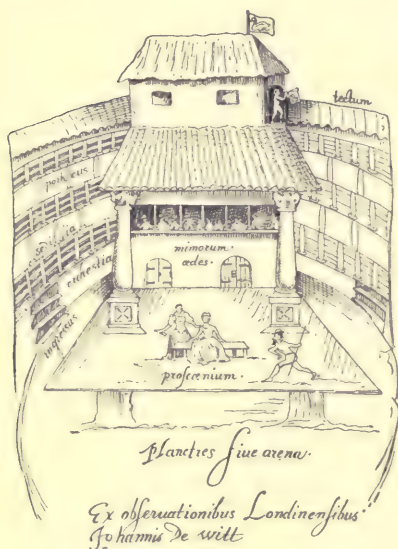 tectum
porticus
orchestra
ingressus
mimorum·
ædes·
proſcænium·
Planities ſiue arena·
Ex obſeruationibus Londinenſibus
Johannis De witt